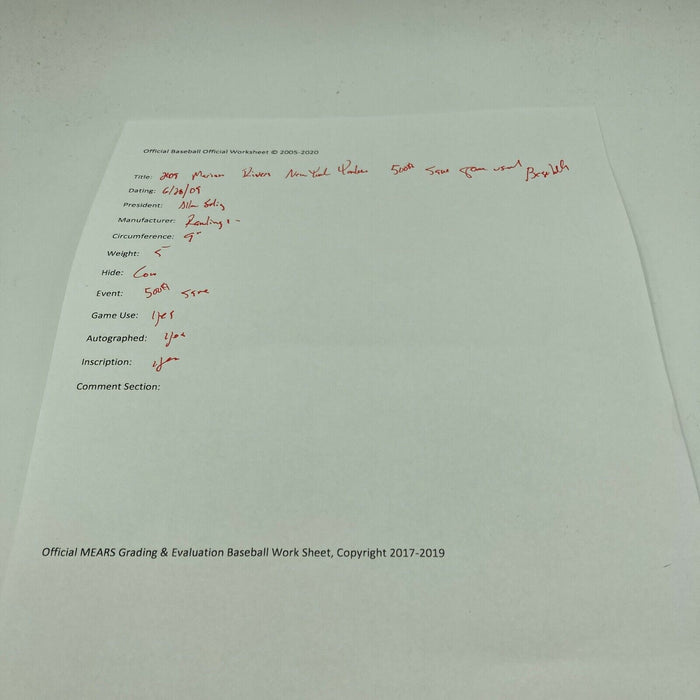 Official Baseball Official Worksheet © 2005-2020
Title: 2009 Mariano Rivera New York Yankees 500th Save game used Baseball
Dating: 6/28/09
President: Allan Selig
Manufacturer: Rawlings -
Circumference: 9"
Weight: 5
Hide: Cow
Event: 500th Save
Game Use: yes
Autographed: yes
Inscription: yes
Comment Section:
Official MEARS Grading & Evaluation Baseball Work Sheet, Copyright 2017-2019